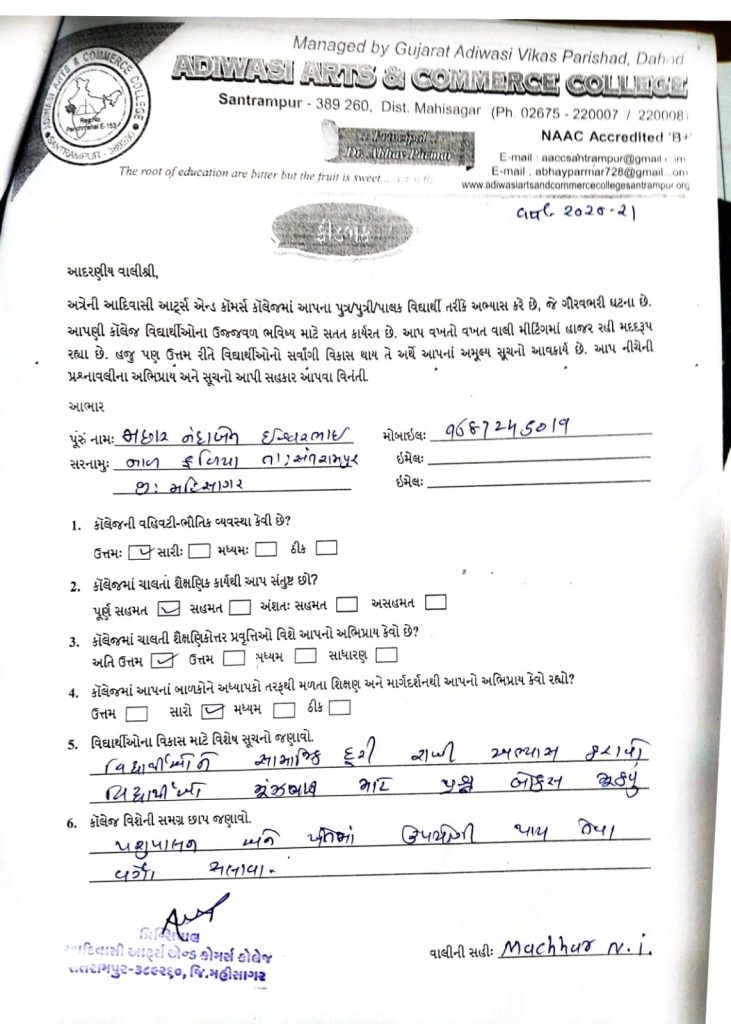 Managed by Gujarat Adiwasi Vikas Parishad, Dahod
ADIWASI ARTS & COMMERCE COLLEGE
Santrampur - 389 260, Dist. Mahisagar (Ph. 02675 - 220007 / 220008)
ADIWASI ARTS & COMMERCE COLLEGE
Reg.No.
Panchmahal E-153
SANTRAMPUR - 389260
:: Principal
Dr. Abhay Parmar
NAAC Accredited 'B+'
E-mail : aaccsantrampur@gmail
E-mail : abhayparmar728@gmail
www.adiwasiartsandcommercecollegesantrampur.org
The root of education are bitter but the fruit is sweet...
વર્ષ 2020-21
ફીડબેક
આદરણીય વાલીશ્રી,
અત્રેની આદિવાસી આર્ટ્સ એન્ડ કૉમર્સ કૉલેજમાં આપના પુત્ર/પુત્રી/પાલક વિદ્યાર્થી તરીકે અભ્યાસ કરે છે, જે ગૌરવભરી ઘટના છે.
આપણી કૉલેજ વિદ્યાર્થીઓના ઉજ્જવળ ભવિષ્ય માટે સતત કાર્યરત છે. આપ વખતો વખત વાલી મીટિંગમાં હાજર રહી મદદરૂપ
રહ્યા છે. હજુ પણ ઉત્તમ રીતે વિદ્યાર્થીઓનો સર્વાંગી વિકાસ થાય તે અર્થે આપનાં અમૂલ્ય સૂચનો આવકાર્ય છે. આપ નીચેની
પ્રશ્નાવલીના અભિપ્રાય અને સૂચનો આપી સહકાર આપવા વિનંતી.
આભાર
પૂરું નામઃ મછાર નંદાબેન ઈશ્વરભાઇ
મોબાઇલઃ 9687245019
સરનામુઃ ફળિયા તા; સંતરામપુર
ઇમેલઃ
જીઃ મહિસાગર
ઇમેલઃ
1. કૉલેજની વહિવટી-ભૌતિક વ્યવસ્થા કેવી છે?
ઉત્તમઃ ✓ સારીઃ મધ્યમઃ ઠીક
2. કૉલેજમાં ચાલતાં શૈક્ષણિક કાર્યથી આપ સંતુષ્ટ છો?
પૂર્ણ સહમત ✓ સહમત અંશતઃ સહમત અસહમત
3. કૉલેજમાં ચાલતી શૈક્ષણિકોત્તર પ્રવૃત્તિઓ વિશે આપનો અભિપ્રાય કેવો છે?
અતિ ઉત્તમ ✓ ઉત્તમ મધ્યમ સાધારણ
4. કૉલેજમાં આપનાં બાળકોને અધ્યાપકો તરફથી મળતા શિક્ષણ અને માર્ગદર્શનથી આપનો અભિપ્રાય કેવો રહ્યો?
ઉત્તમ સારો ✓ મધ્યમ ઠીક
5. વિદ્યાર્થીઓના વિકાસ માટે વિશેષ સૂચનો જણાવો.
વિદ્યાર્થીઓને સામાજિક દૂરી રાખી અભ્યાસ કરાવો
વિદ્યાર્થીઓ માટે પ્રશ્ન બોક્સ મૂકવું
6. કૉલેજ વિશેની સમગ્ર છાપ જણાવો.
પશુપાલન અને ખેતીમાં ઉપયોગી થાય તેવા
વર્ગો ચલાવા.
પ્રિન્સિપાલ
આદિવાસી આર્ટ્સ એન્ડ કોમર્સ કોલેજ
સંતરામપુર-૩૮૯૨૬૦, જિ.મહીસાગર
વાલીની સહીઃ Machhar N. I.